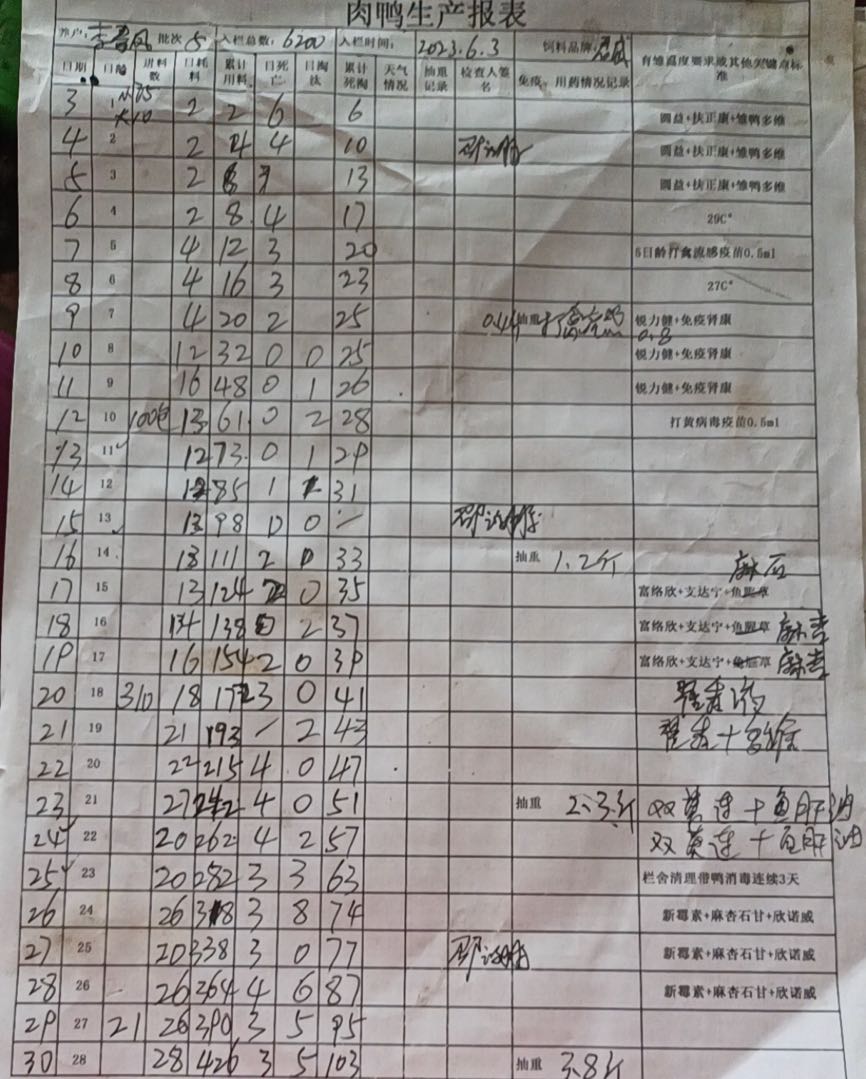 肉鸭生产报表
养户: 批次 5 入栏总数: 6200 入栏时间: 2023.6.3 饲料品牌:
日期 日龄 进料数 日耗料 累计用料 日死亡 日淘汰 累计死淘 天气情况 抽重记录 检查人签名 免疫、用药情况记录 育雏温度要求或其他关键点标准
3 1 2 2 6 6 圆益+扶正康+雏鸭多维
4 2 2 4 4 10 圆益+扶正康+雏鸭多维
5 3 2 6 3 13 圆益+扶正康+雏鸭多维
6 4 2 8 4 17 29C°
7 5 4 12 3 20 5日龄打禽流感疫苗0.5ml
8 6 4 16 3 23 27C°
9 7 4 20 2 25 抽重 锐力健+免疫肾康
10 8 12 32 0 0 25 0.8 锐力健+免疫肾康
11 9 16 48 0 1 26 锐力健+免疫肾康
12 10 100包 13 61 0 2 28 打黄病毒疫苗0.5ml
13 11 12 73 0 1 29
14 12 12 85 1 1 31
15 13 13 98 0 0
16 14 13 111 2 0 33 抽重 1.2斤
17 15 13 124 2 0 35 富络欣+支达宁+鱼腥草
18 16 14 138 0 2 37 富络欣+支达宁+鱼腥草
19 17 16 154 2 0 39 富络欣+支达宁+鱼腥草
20 18 310 18 172 3 0 41
21 19 21 193 2 43
22 20 22 215 4 0 47
23 21 27 242 4 0 51 抽重 2.3斤 双黄连+鱼肝油
24 22 20 262 4 2 57 双黄连+鱼肝油
25 23 20 282 3 3 63 栏舍清理带鸭消毒连续3天
26 24 26 318 3 8 74 新霉素+麻杏石甘+欣诺威
27 25 20 338 3 0 77 新霉素+麻杏石甘+欣诺威
28 26 26 364 4 6 87 新霉素+麻杏石甘+欣诺威
29 27 21 26 390 3 5 95
30 28 28 426 3 5 103 抽重 3.8斤